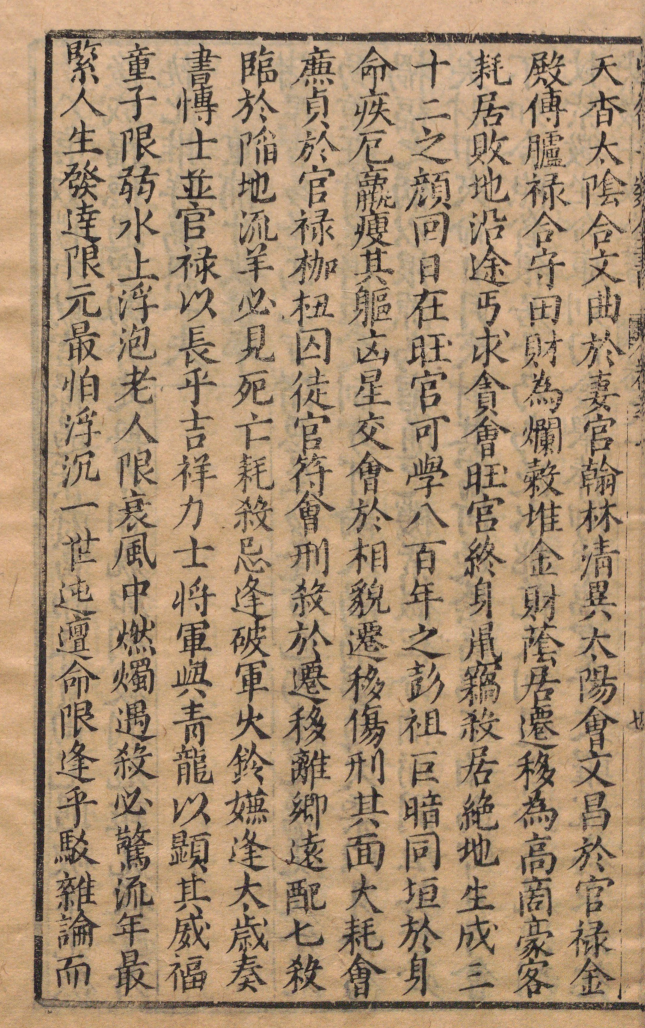 天杳太陰合文曲於妻宫翰林清異太陽會文昌於官禄金
殿傳臚禄合守田財為爛穀堆金財蔭居遷移為高啇豪客
耗居敗地沿途丐求貪會旺宫終身鼠竊殺居絶地生成三
十二之顔回日在旺宫可學八百年之彭祖巨暗同垣於身
命疾厄羸瘦其軀凶星交會於相貌遷移傷刑其面大耗會
廉貞於官禄枷杻囚徒官符會刑殺於遷移離鄉遠配七殺
臨於陷地流羊必見死亡耗殺忌逢破軍火鈴嫌逢太歲奏
書愽士並官禄以長乎吉祥力士将軍與青龍以顯其威福
童子限弱水上浮泡老人限衰風中燃燭遇殺必驚流年最
緊人生發達限元最怕浮沉一世迍邅命限逢乎駁雜論而